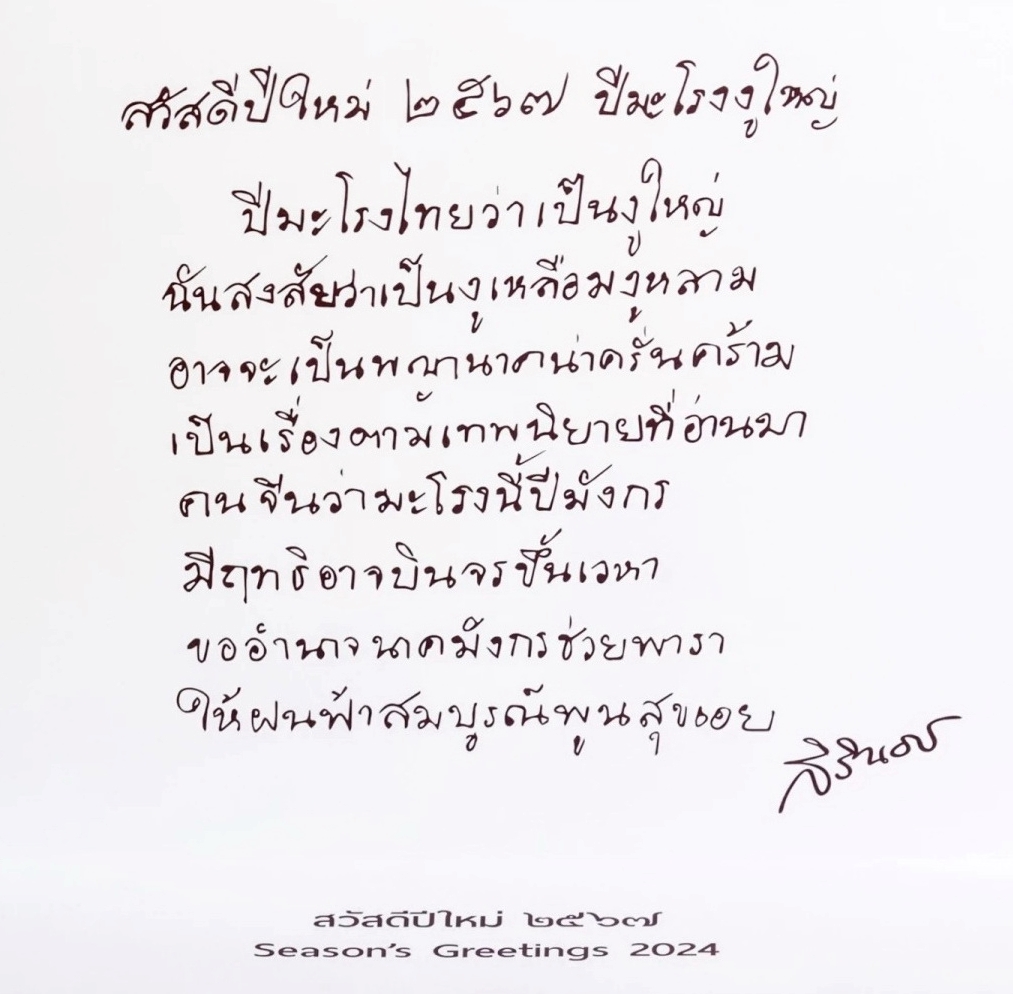 สวัสดีปีใหม่ ๒๕๖๗ ปีมะโรงงูใหญ่
ปีมะโรงไทยว่าเป็นงูใหญ่
ฉันสงสัยว่าเป็นงูเหลือมงูหลาม
อาจจะเป็นพญานาคน่าครั่นคร้าม
เป็นเรื่องตามเทพนิยายที่อ่านมา
คนจีนว่ามะโรงนี้ปีมังกร
มีฤทธิอาจบินจรขึ้นเวหา
ขออำนาจนาคมังกรช่วยพารา
ให้ฝนฟ้าสมบูรณ์พูนสุขเอย
สิรินธร
สวัสดีปีใหม่ ๒๕๖๗
Season's Greetings 2024